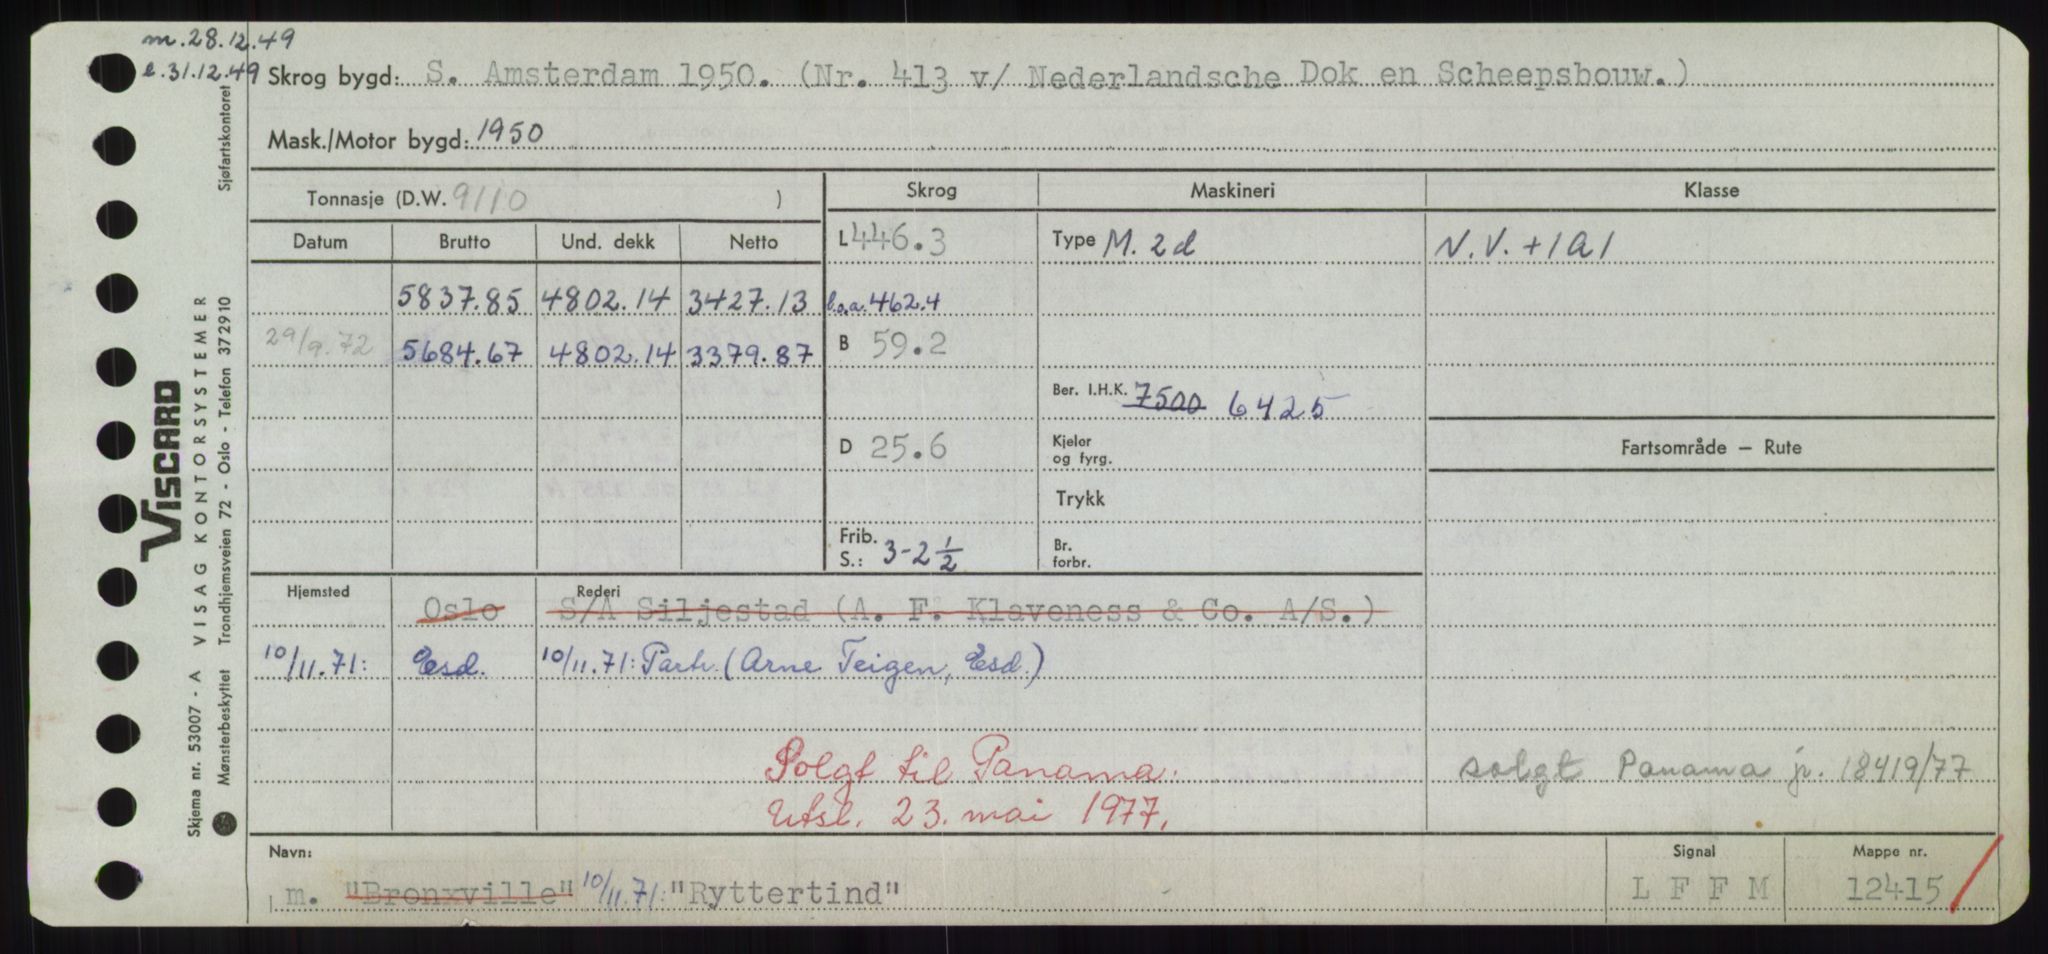 m. 28.12.49
l. 31.12.49
Skrog bygd: S. Amsterdam 1950. (Nr. 413 v/ Nederlandsche Dok en Scheepsbouw.)
Mask./Motor bygd: 1950
Tonnasje (D.W. 9110 )
Skrog Maskineri Klasse
Datum Brutto Und. dekk Netto
L 446.3 Type M. 2d N.V. +1A1
5837.85 4802.14 3427.13 l.o.a. 462.4
29/9.72 5684.67 4802.14 3379.87 B 59.2
Ber. I.H.K. 7500 6425
D 25.6 Kjeler og fyrg. Fartsområde — Rute
Trykk
Frib. S.: 3-2 1/2 Br. forbr.
Hjemsted Rederi
Oslo S/A Siljestad (A. F. Klaveness & Co. A/S.)
10/11.71: Esd. 10/11.71: Partr. (Arne Teigen, Esd.)
Solgt til Panama. solgt Panama jr. 18419/77
Utsl. 23. mai 1977.
Navn: Signal Mappe nr.
m. "Bronxville" 10/11.71: "Ryttertind" L F F M 12415
Skjema nr. 53007 - A VISAG KONTORSYSTEMER
VISCARD
Mønsterbeskyttet Trondhjemsveien 72 - Oslo - Telefon 372910 Sjøfartskontoret